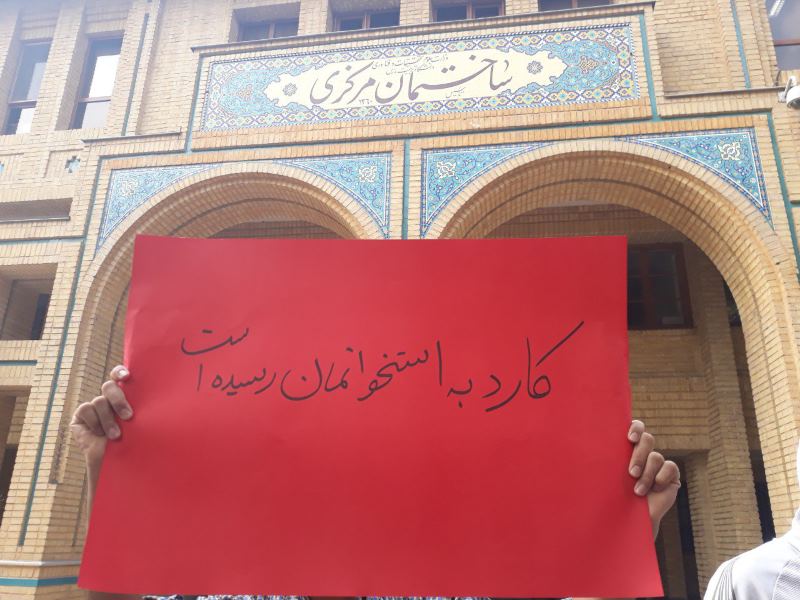 ساختمان مرکزی
۱۳۶۰
کارد به استخوانمان رسیده است